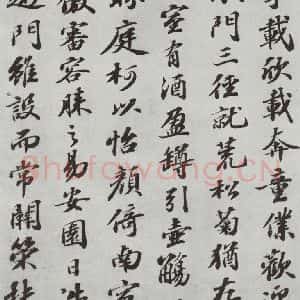 載欣載奔童僕歡迎
門三徑就荒松菊猶存
室有酒盈罇引壺觴
庭柯以怡顏倚南窗
傲審容膝之易安園日涉
門雖設而常關策扶
Shufawang.CN